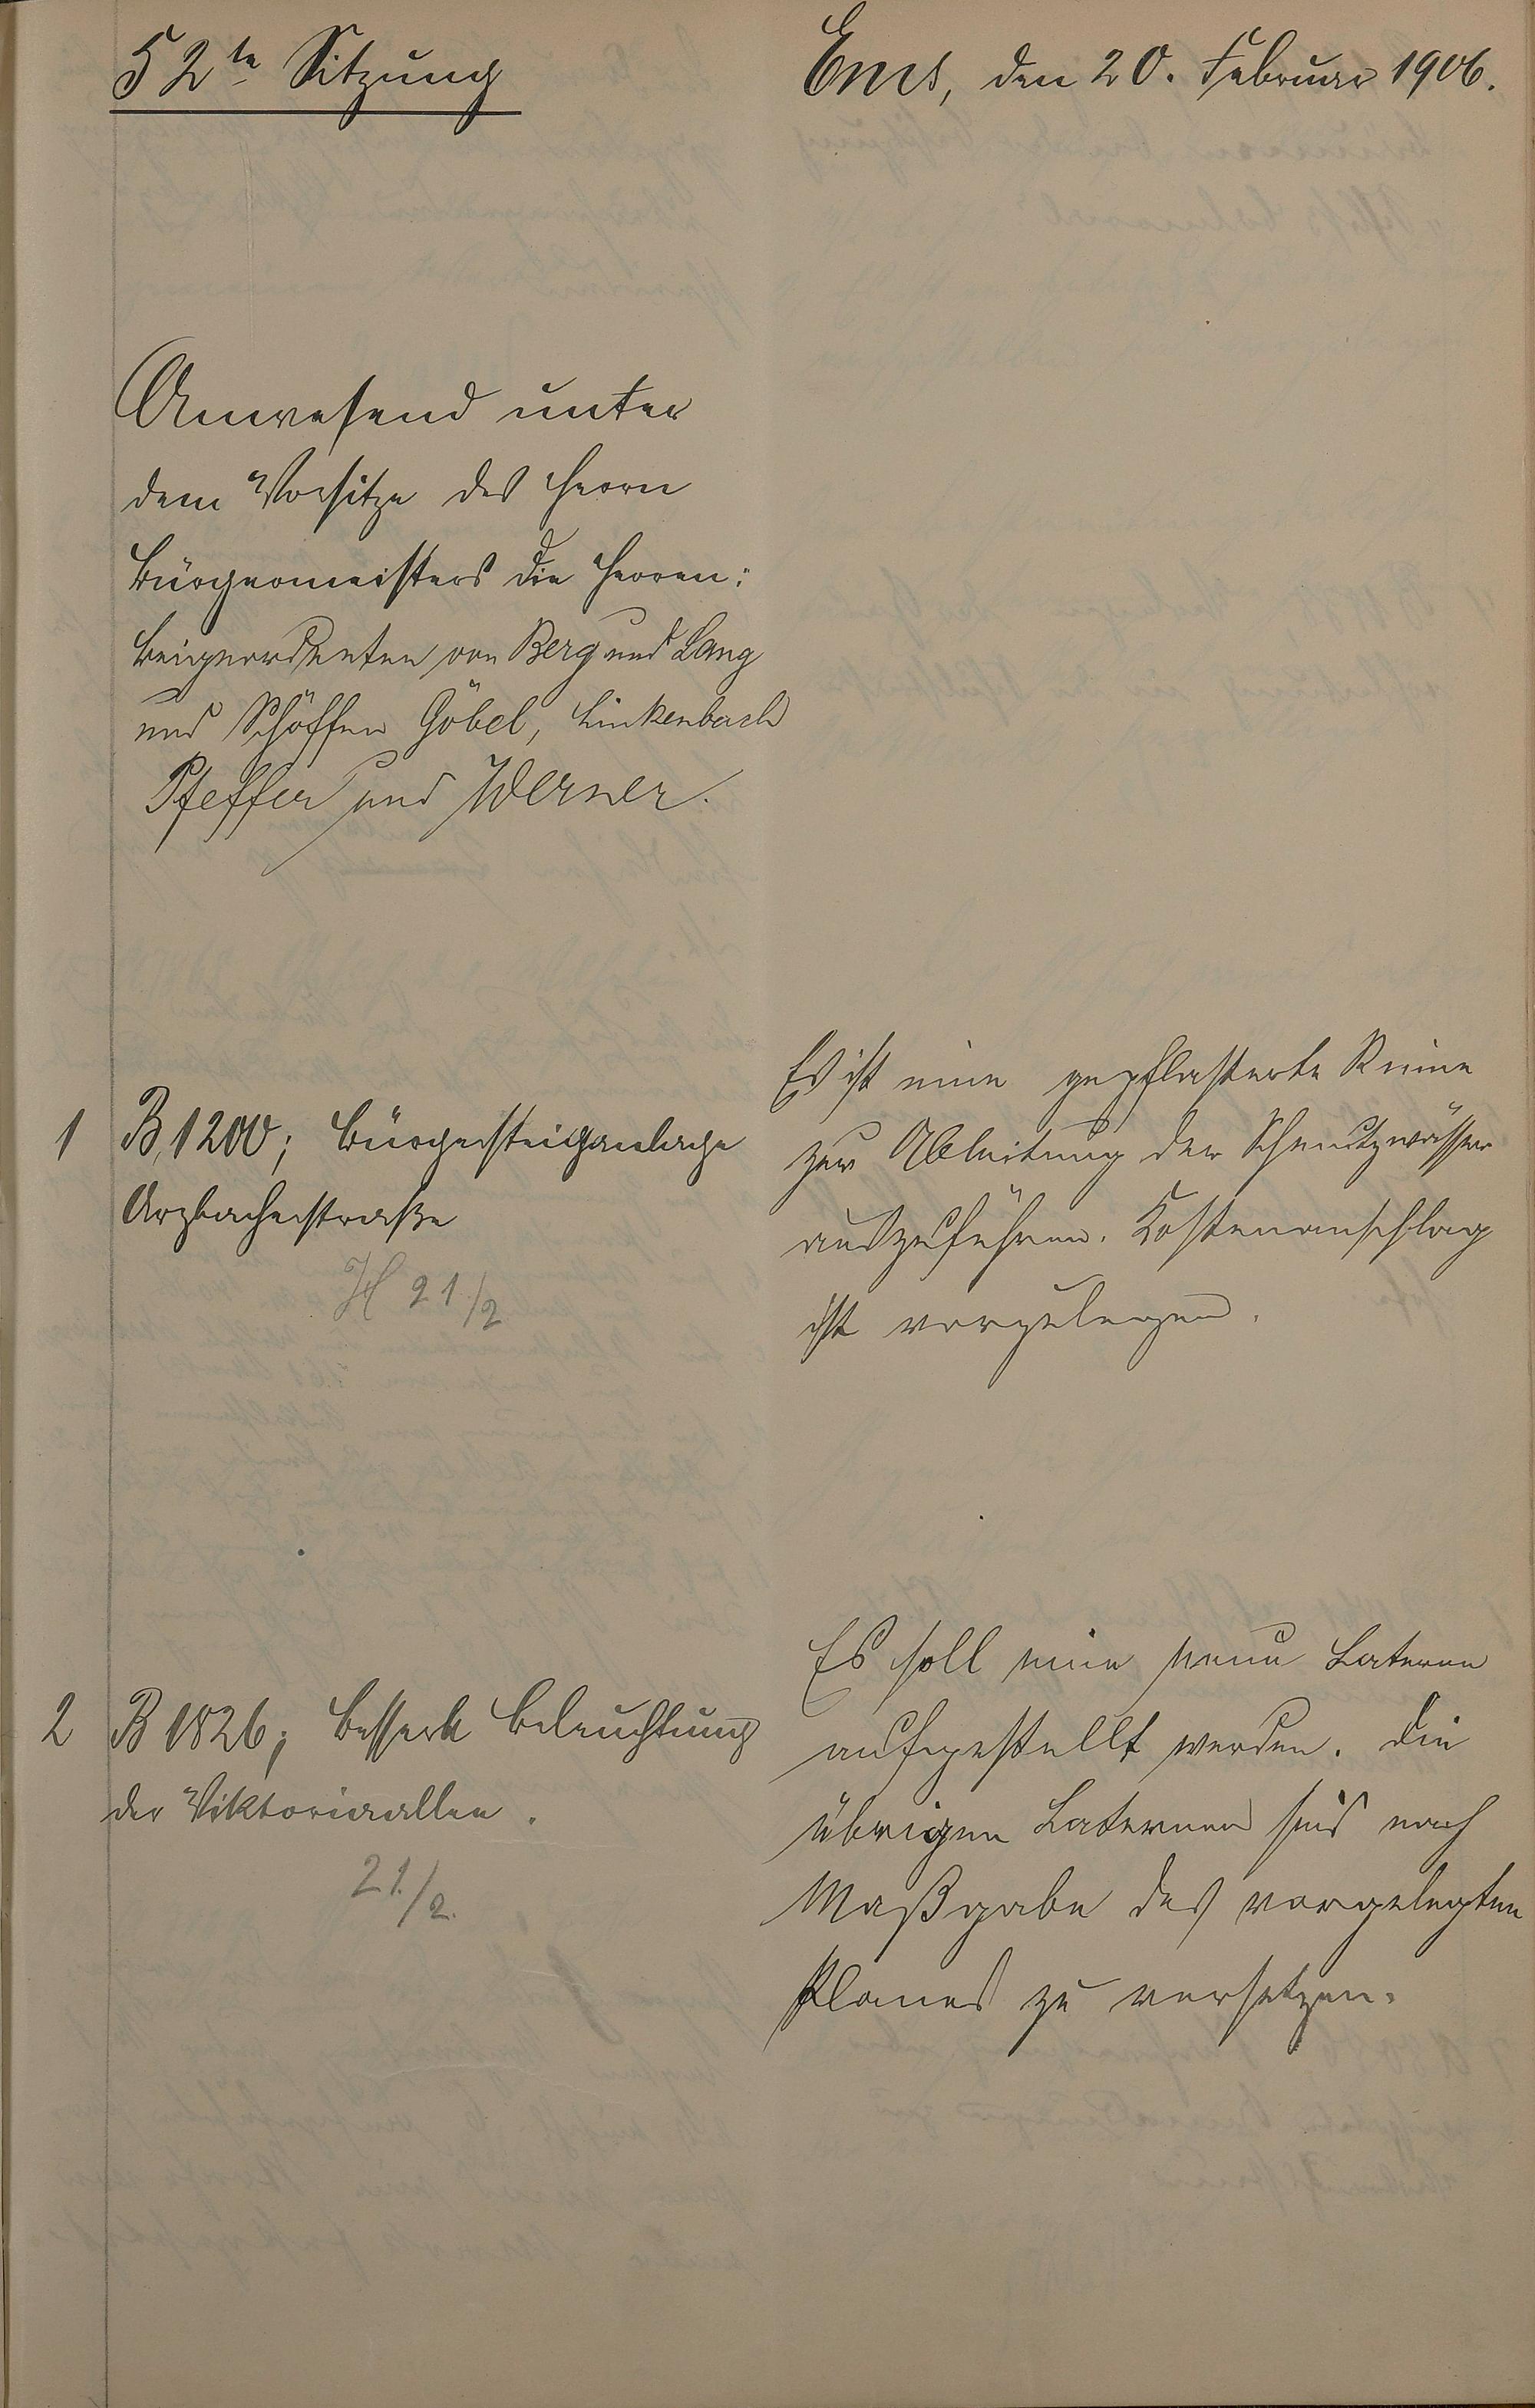 52te Sitzung
Ems, den 20. Februar 1906.
Anwesend unter
dem Vorsitze des Herrn
Bürgermeisters die Herren:
Beigeordneten von Berg und Lang
und Schöffen Göbel, Linkenbach
Pfeffer und Werner.
1 B. 1200; Bürgersteiganlage
Arzbacherstraße
H 21./2
Es ist eine gepflasterte Rinne
zur Ableitung der Schmutzwässer
auszuführen. Kostenanschlag
ist vorzulegen.
2 B 1826; Bessere Beleuchtung
der Viktoriaallee.
21./2.
Es soll eine neue Laterne
aufgestellt werden. Die
übrigen Laternen sind nach
Maßgabe des vorgelegten
Planes zu versetzen.